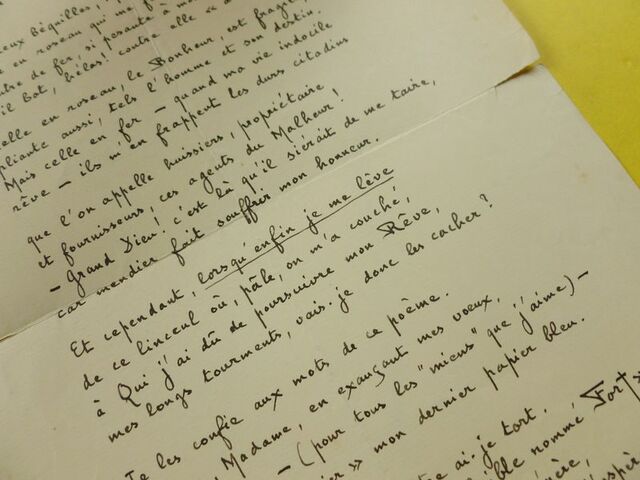 eux béquilles,
en roseau qui me
de fer, si posante à mo
il bat, hélas! contre elle
elle en roseau, le Bonheur, est fragile,
pliante aussi, tels l'homme et son destin.
Mais celle en fer — quand ma vie indocile
rêve — ils m'en frappent les durs citadins
que l'on appelle huissiers, propriétaire,
et fournisseurs, ces agents du Malheur!
— Grand Dieu! c'est là qu'il siérait de me taire,
car mendier fait souffrir mon honneur.
Et cependant, lorsqu'enfin je me lève
de ce linceul où, pâle, on m'a couché,
à Qui j'ai dû de poursuivre mon Rêve,
mes longs tourments, vais-je donc les cacher?
Je les confie aux mots de ce poème.
Madame, en exauçant mes voeux,
— (pour tous les "miens" que j'aime) —
» mon dernier papier bleu.
ai-je tort.
nommé Fort